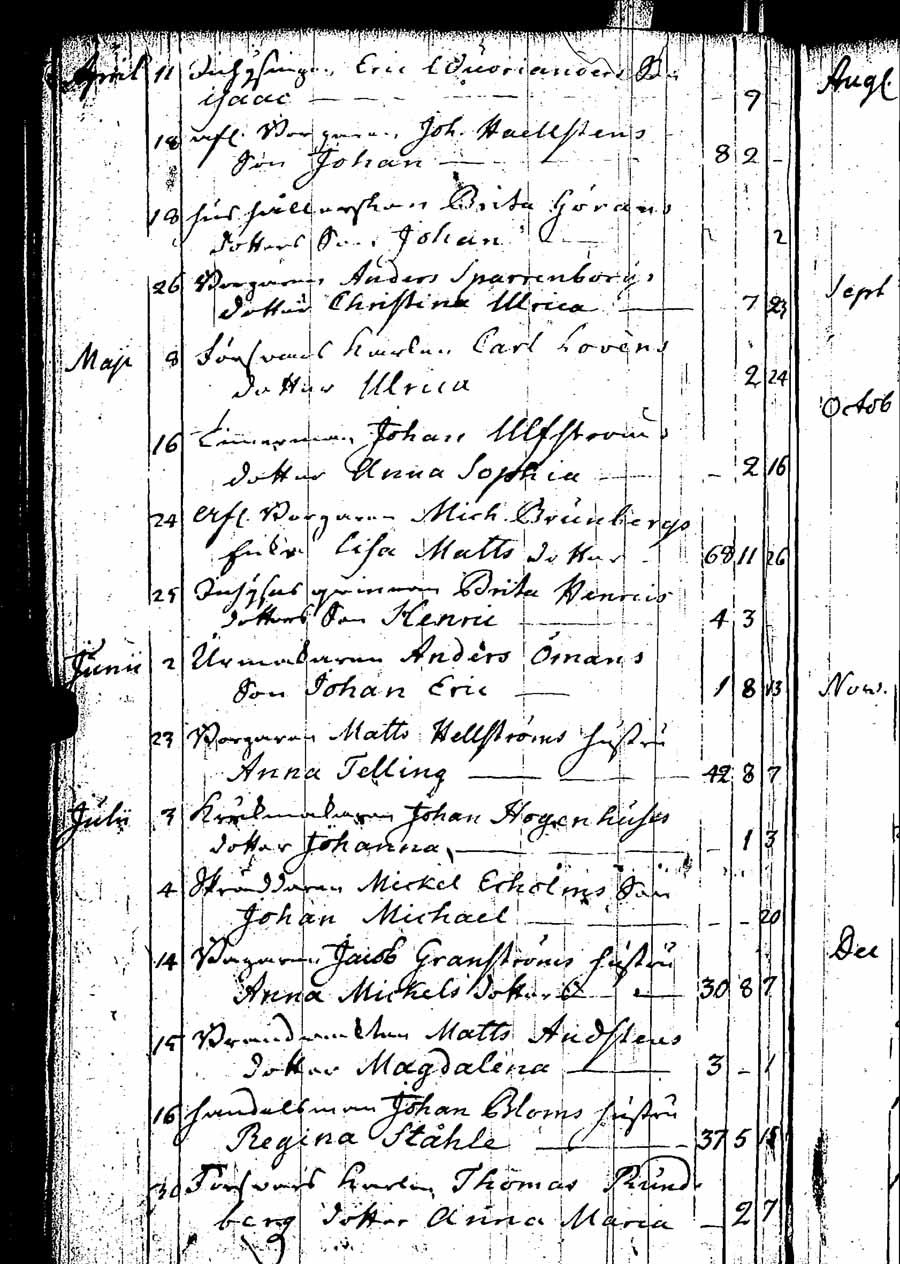 April 11 Inhysingen Eric Qvorianders S.
Isaac - 9 -
18 Afl. Borgaren Joh. Haellstens
Son Johan - 8 2 -
18 hushållerskan Brita Görans
dotters Son Johan 2
26 Borgaren Anders Sparrenborgs
dotter Christina Ulrica 7 23
Maji 8 Försvars karlen Carl Lovéns
dotter Ulrica 2 24
16 Timerman Johan Ulfströms
dotter Anna Sophia - 2 16
24 Afl. Borgaren Mich. Brunbergs
Enka Lisa Matts dotter 68 11 26
25 Inhyses qvinnan Brita Henrics
dotters Son Henric 4 3
Junii 2 Urmakaren Anders Ömans
Son Johan Eric 1 8 13
23 Borgaren Matts Hellströms hustru
Anna Telling 42 8 7
Julii 3 Krukmakaren Johan Hogenhuses
dotter Johanna - 1 3
4 Skräddaren Mickel Echolms Son
Johan Michael - - 20
14 Bagaren Jacob Granströms hustru
Anna Mickels dotter 30 8 7
15 Brandvakten Matts Andstens
dotter Magdalena 3 - 1
16 handelsman Johan Bloms hustru
Regina Ståhle 37 5 15
30 Försvars karlen Thomas Rund-
berg dotter Anna Maria - 2 7
Augl.
Sept
Octob
Nov.
Dec